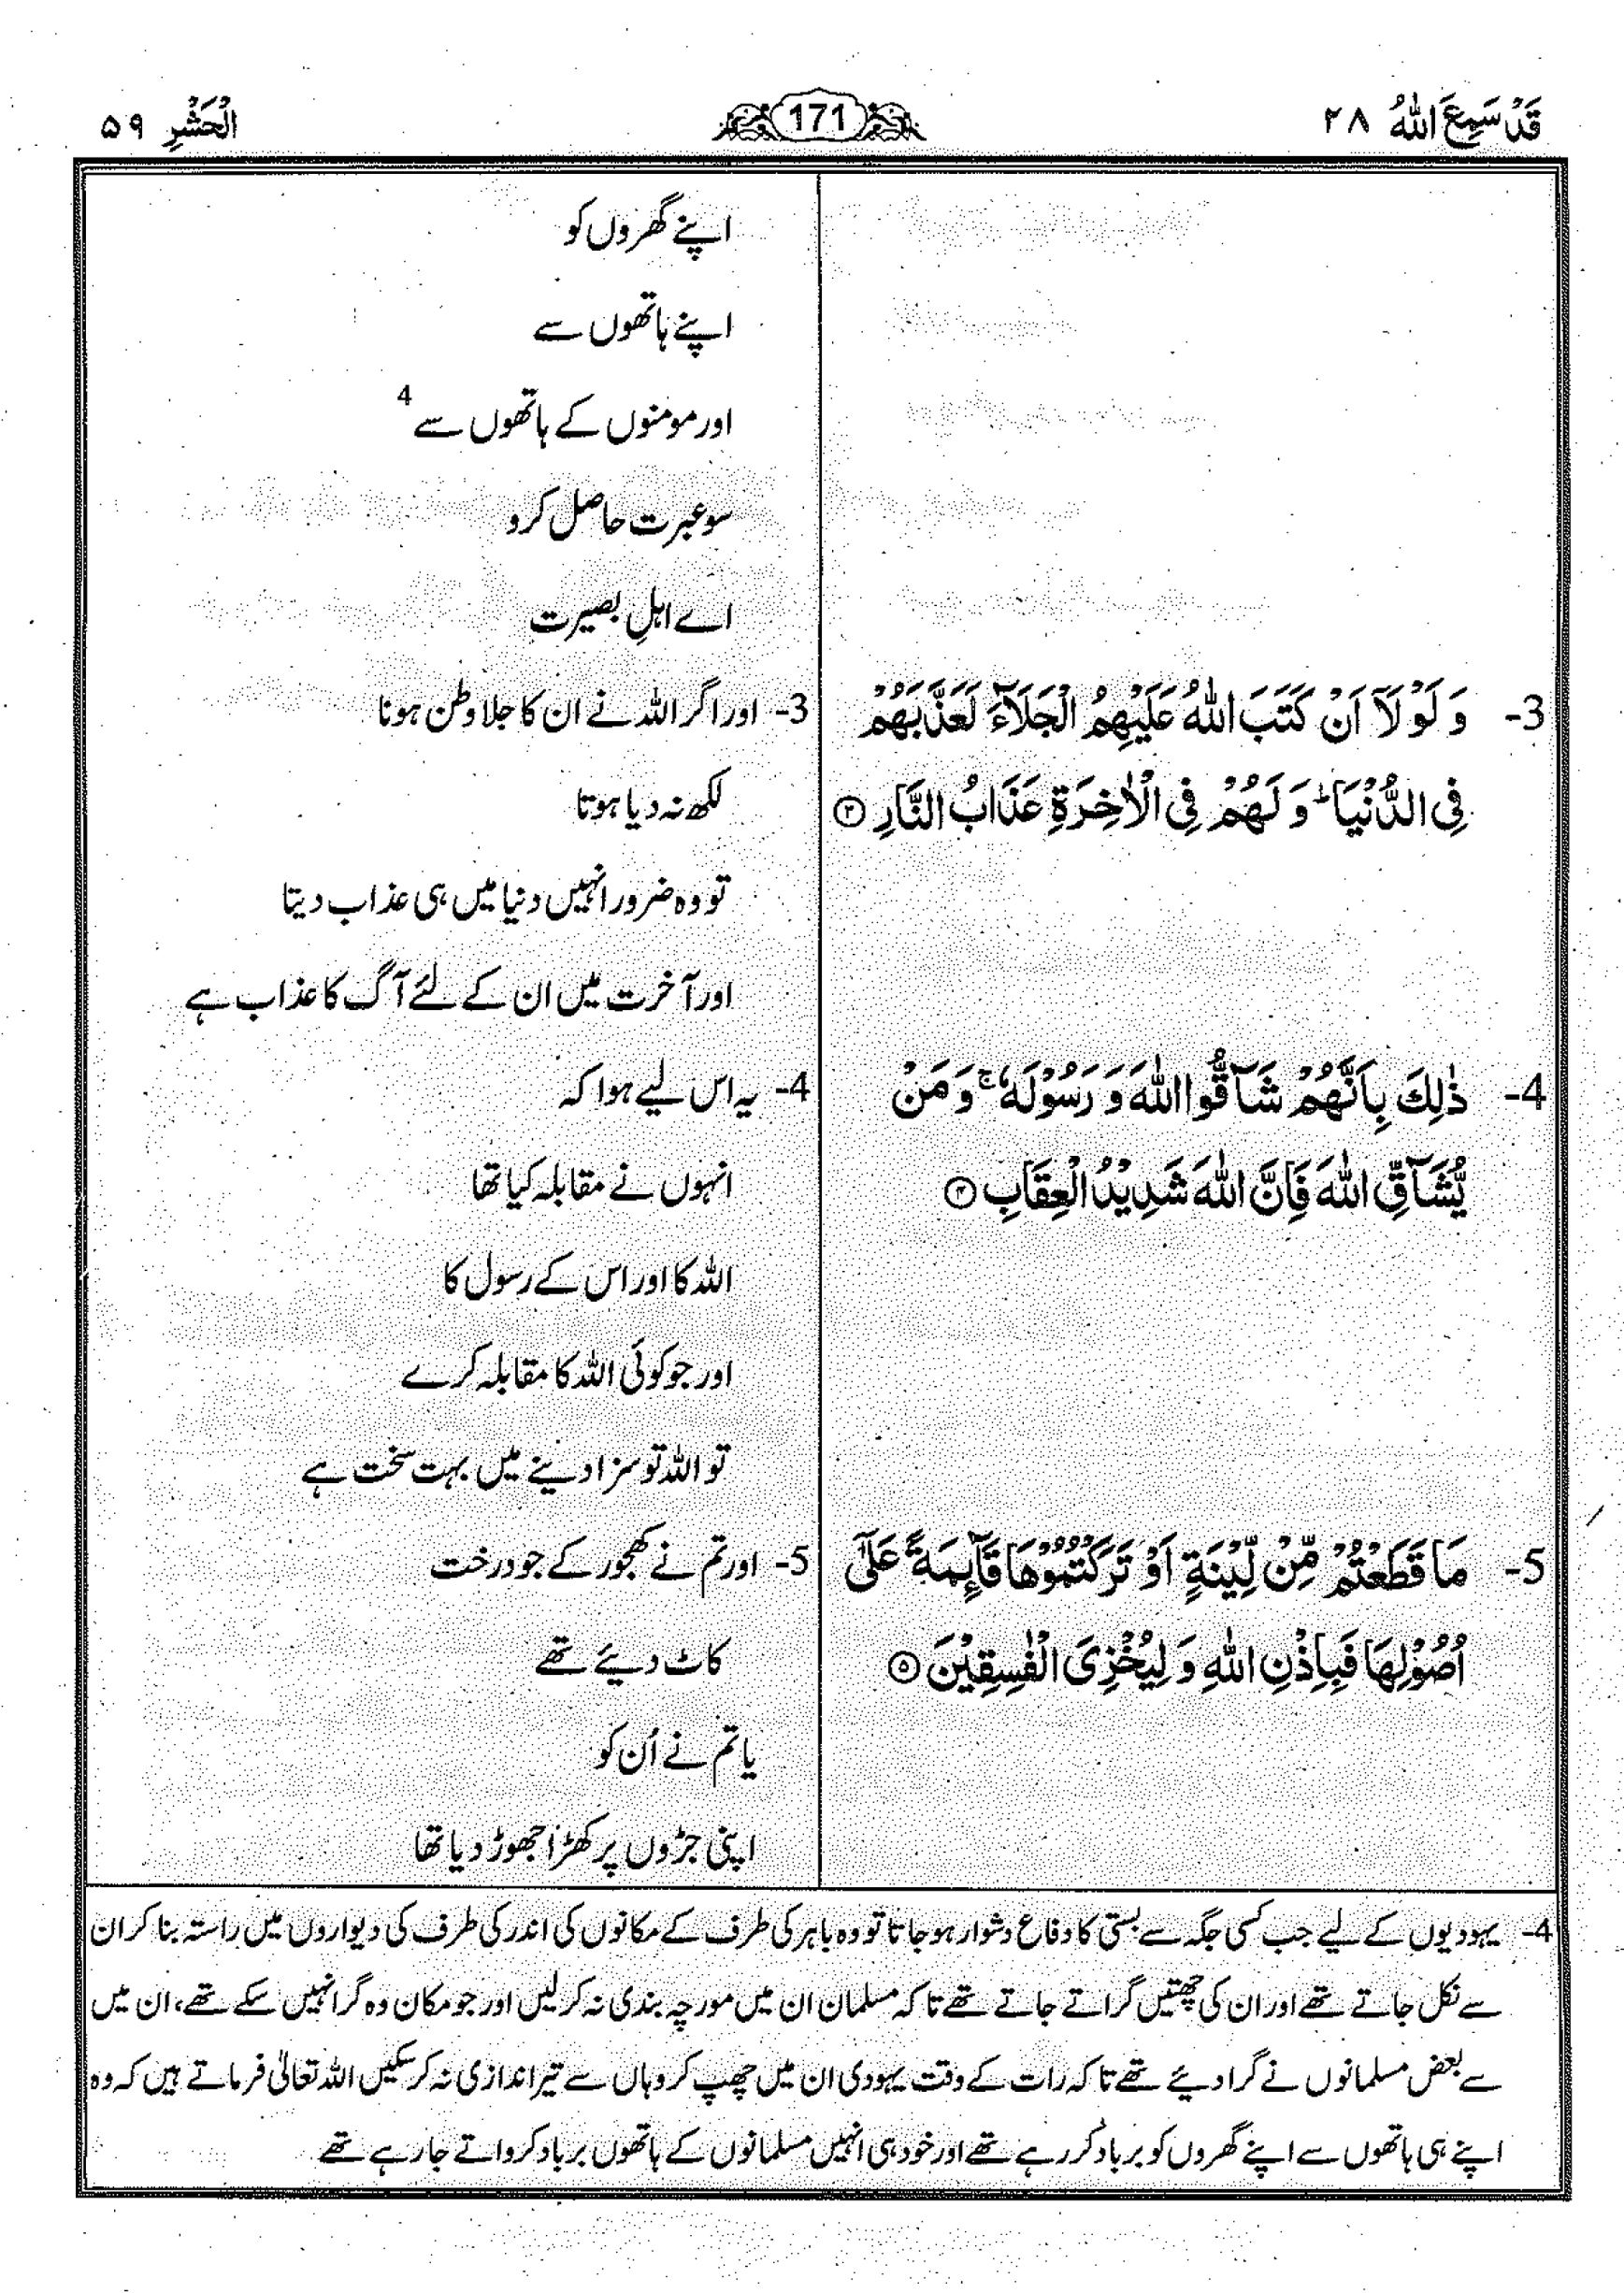 قَدْ سَمِعَ اللّٰهُ ۲۸
171
الْحَشْرِ ۵۹
اپنے گھروں کو
اپنے ہاتھوں سے
اور مومنوں کے ہاتھوں سے 4
سو عبرت حاصل کرو
اے اہلِ بصیرت
3- وَ لَوْ لَاۤ اَنْ كَتَبَ اللّٰهُ عَلَيْهِمُ الْجَلَآءَ لَعَذَّبَهُمْ
فِي الدُّنْيَا ؕ وَ لَهُمْ فِي الْاٰخِرَةِ عَذَابُ النَّارِ ۝۳
3- اور اگر اللہ نے ان کا جلا وطن ہونا
لکھ نہ دیا ہوتا
تو وہ ضرور انہیں دنیا میں ہی عذاب دیتا
اور آخرت میں ان کے لئے آگ کا عذاب ہے
4- ذٰلِكَ بِاَنَّهُمْ شَآقُّوا اللّٰهَ وَ رَسُوْلَهٗ ۚ وَ مَنْ
يُّشَآقِّ اللّٰهَ فَاِنَّ اللّٰهَ شَدِيْدُ الْعِقَابِ ۝۴
4- یہ اس لیے ہوا کہ
انہوں نے مقابلہ کیا تھا
اللہ کا اور اس کے رسول کا
اور جو کوئی اللہ کا مقابلہ کرے
تو اللہ تو سزا دینے میں بہت سخت ہے
5- مَا قَطَعْتُمْ مِّنْ لِّيْنَةٍ اَوْ تَرَكْتُمُوْهَا قَآئِمَةً عَلٰۤى
اُصُوْلِهَا فَبِاِذْنِ اللّٰهِ وَ لِيُخْزِيَ الْفٰسِقِيْنَ ۝۵
5- اور تم نے کھجور کے جو درخت
کاٹ دیئے تھے
یا تم نے اُن کو
اپنی جڑوں پر کھڑا چھوڑ دیا تھا
4- یہودیوں کے لیے جب کسی جگہ سے بستی کا دفاع دشوار ہو جاتا تو وہ باہر کی طرف کے مکانوں کی اندر کی طرف کی دیواروں میں راستہ بنا کر ان
سے نکل جاتے تھے اور ان کی چھتیں گراتے جاتے تھے تاکہ مسلمان ان میں مورچہ بندی نہ کر لیں اور جو مکان وہ گرا نہیں سکے تھے، ان میں
سے بعض مسلمانوں نے گرا دیئے تھے تاکہ رات کے وقت یہودی ان میں چھپ کر وہاں سے تیر اندازی نہ کر سکیں اللہ تعالیٰ فرماتے ہیں کہ وہ
اپنے ہی ہاتھوں سے اپنے گھروں کو برباد کر رہے تھے اور خود ہی انہیں مسلمانوں کے ہاتھوں برباد کرواتے جا رہے تھے